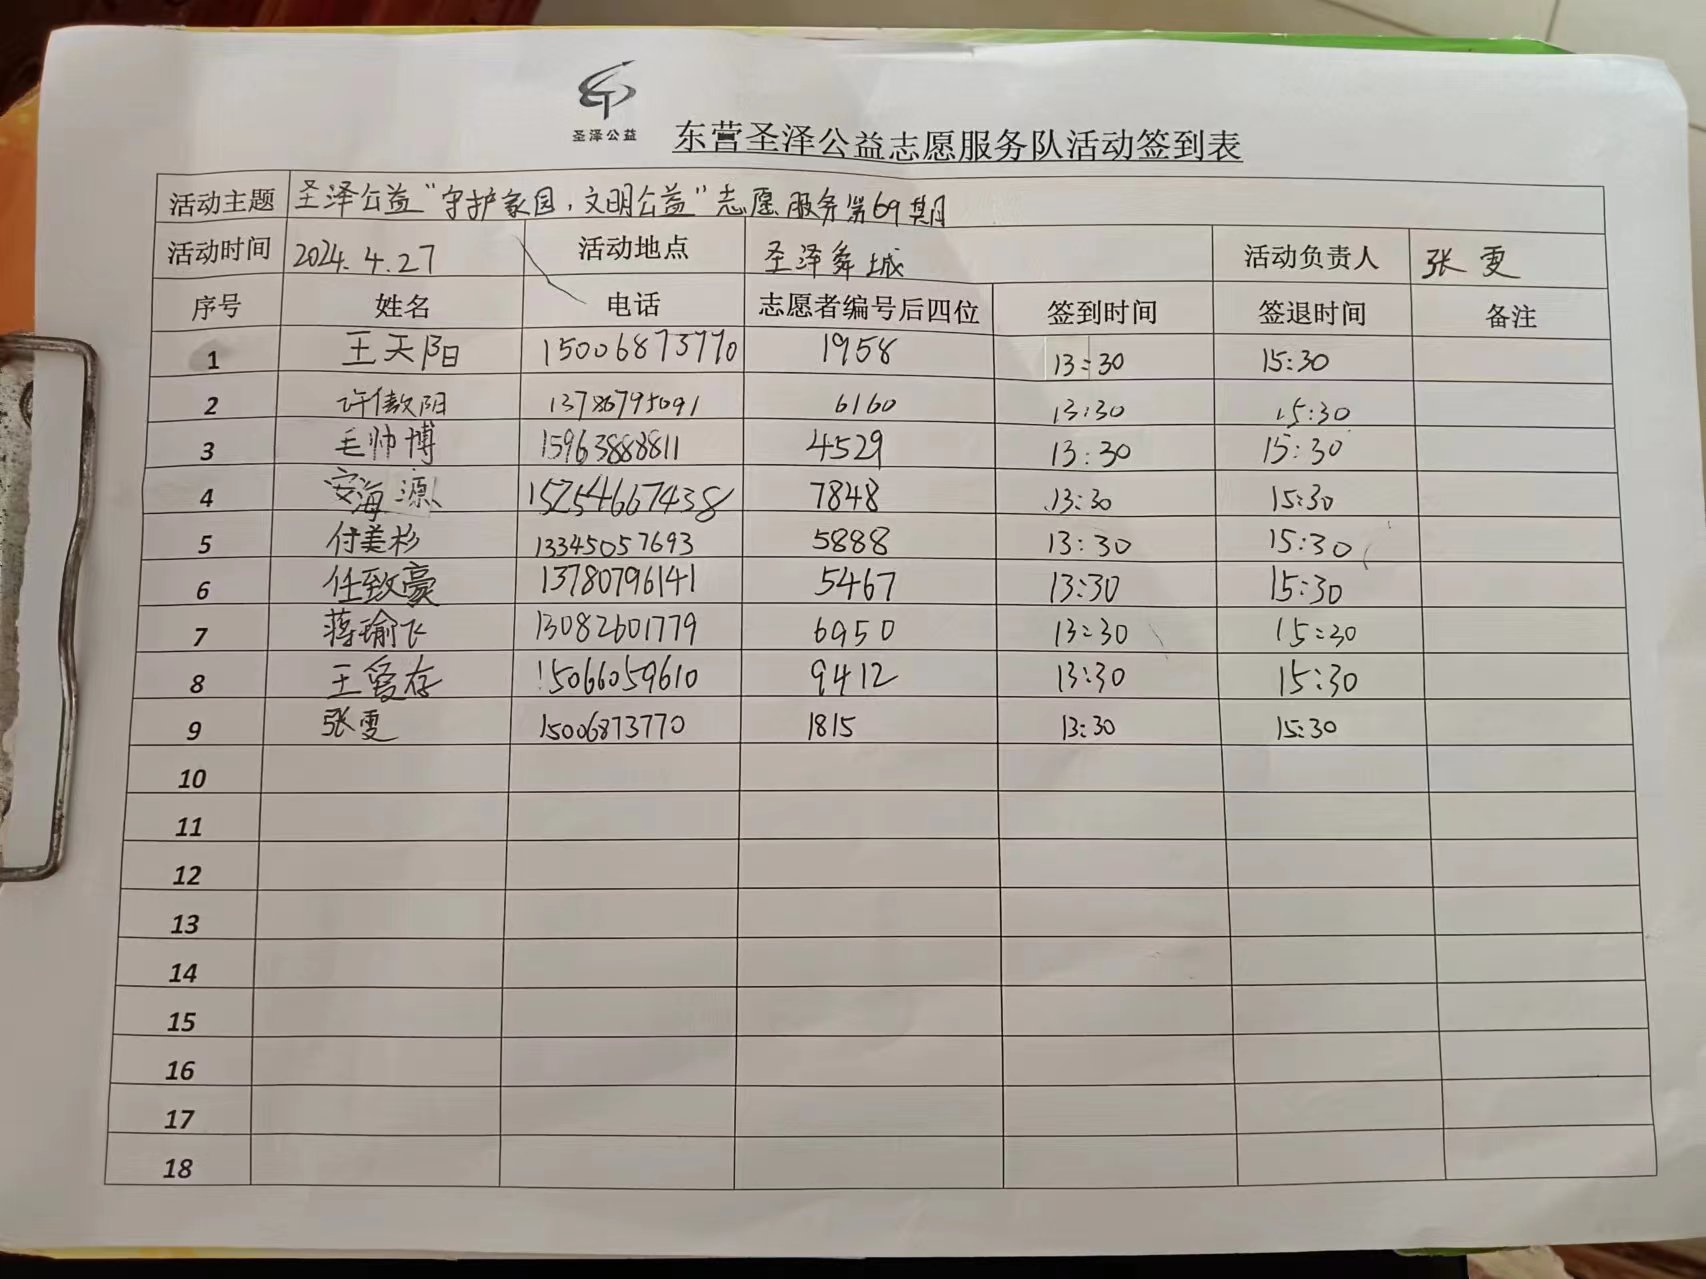 圣泽公益
东营圣泽公益志愿服务队活动签到表
活动主题 圣泽公益"守护家园,文明公益"志愿服务第69期
活动时间 2024.4.27 活动地点 圣泽舜城 活动负责人 张雯
序号 姓名 电话 志愿者编号后四位 签到时间 签退时间 备注
1 王天阳 15006873770 1958 13:30 15:30
2 许傲阳 6160 13:30 15:30
3 毛帅博 15963888811 4529 13:30 15:30
4 安海源 15254667438 7848 13:30 15:30
5 付美杉 13345057693 5888 13:30 15:30
6 任致豪 13780796141 5467 13:30 15:30
7 蒋瑜飞 13082601779 6950 13:30 15:30
8 王爱存 15066059610 9412 13:30 15:30
9 张雯 15006873770 1815 13:30 15:30
10
11
12
13
14
15
16
17
18